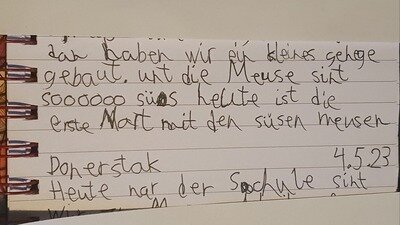 dan haben wir ein kleines gehege
gebaut. unt die Meuse sint
soooooo süs heute ist die
erste Nart mit den süsen meusen
Donerstak 4.5.23
Heute nar der Schule sint